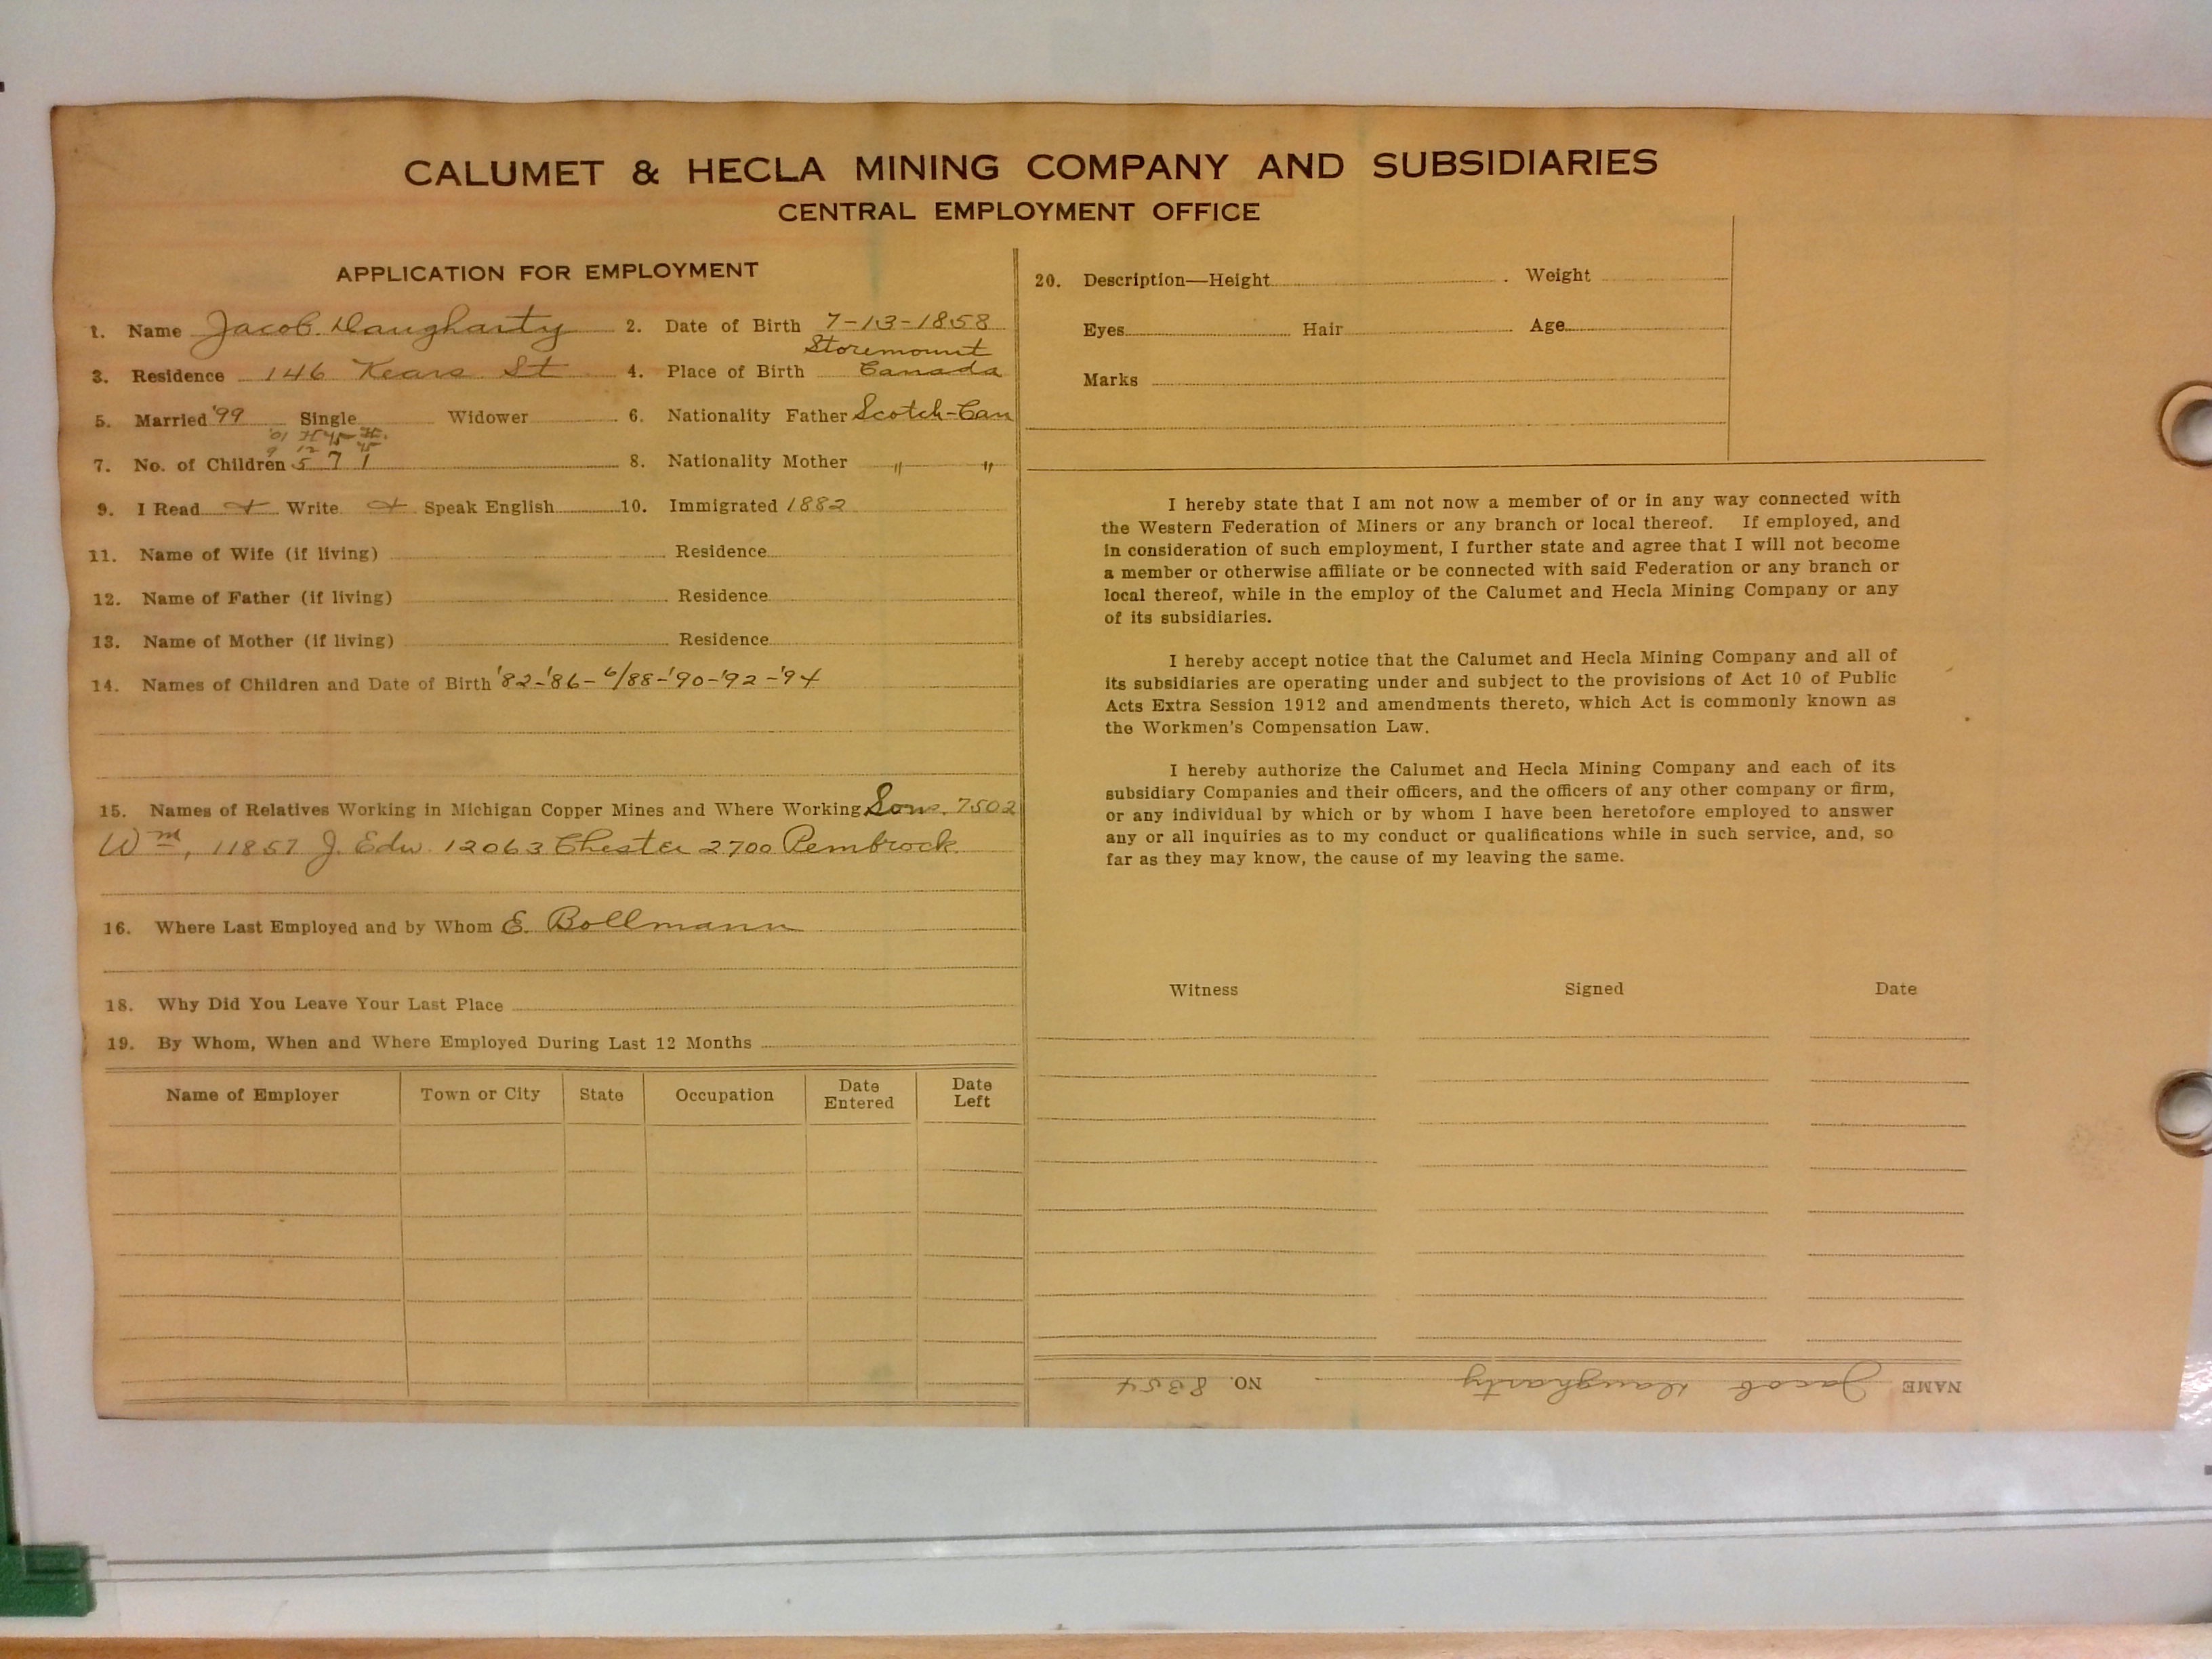 CALUMET & HECLA MINING COMPANY AND SUBSIDIARIES
CENTRAL EMPLOYMENT OFFICE
APPLICATION FOR EMPLOYMENT
1. Name Jacob Daugharty 2. Date of Birth 7-13-1858
3. Residence 146 Kears St 4. Place of Birth Storemount Canada
5. Married '99 Single Widower 6. Nationality Father Scotch-Can
7. No. of Children 5 7 1 8. Nationality Mother " "
9. I Read + Write + Speak English 10. Immigrated 1882
11. Name of Wife (if living) Residence
12. Name of Father (if living) Residence
13. Name of Mother (if living) Residence
14. Names of Children and Date of Birth '82-'86-6/88-'90-'92-'94
15. Names of Relatives Working in Michigan Copper Mines and Where Working Sons. 7502
Wm, 11857 J. Edw. 12063 Chester 2700 Pembrock
16. Where Last Employed and by Whom E. Bollmann
18. Why Did You Leave Your Last Place
19. By Whom, When and Where Employed During Last 12 Months
Name of Employer Town or City State Occupation Date Entered Date Left
20. Description—Height Weight
Eyes Hair Age
Marks
I hereby state that I am not now a member of or in any way connected with
the Western Federation of Miners or any branch or local thereof. If employed, and
in consideration of such employment, I further state and agree that I will not become
a member or otherwise affiliate or be connected with said Federation or any branch or
local thereof, while in the employ of the Calumet and Hecla Mining Company or any
of its subsidiaries.
I hereby accept notice that the Calumet and Hecla Mining Company and all of
its subsidiaries are operating under and subject to the provisions of Act 10 of Public
Acts Extra Session 1912 and amendments thereto, which Act is commonly known as
the Workmen's Compensation Law.
I hereby authorize the Calumet and Hecla Mining Company and each of its
subsidiary Companies and their officers, and the officers of any other company or firm,
or any individual by which or by whom I have been heretofore employed to answer
any or all inquiries as to my conduct or qualifications while in such service, and, so
far as they may know, the cause of my leaving the same.
Witness Signed Date
NAME Jacob Daugharty NO. 8354